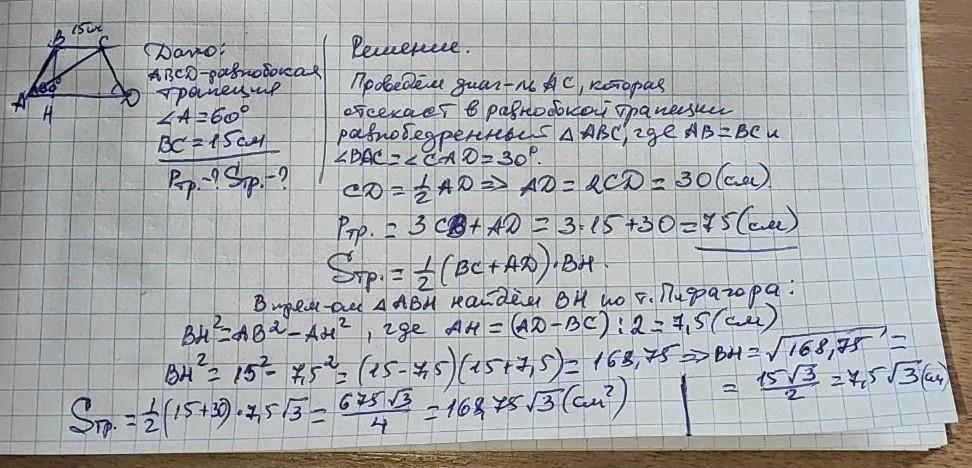 B 15см C
A 60° D
H
Дано:
ABCD-равнобокая
трапеция
∠A=60°
BC=15см
Pтр.-? Sтр.-?
Решение.
Проведём диаг-ль AC, которая
отсекает в равнобокой трапеции
равнобедренный △ABC, где AB=BC и
∠BAC=∠CAD=30°.
CD=½AD⇒ AD=2CD=30(см).
Pтр.=3CB+AD=3·15+30=75(см)
Sтр.=½(BC+AD)·BH.
В прям-ом △ABH найдём BH по т. Пифагора:
BH²=AB²-AH², где AH=(AD-BC):2=7,5(см)
BH²=15²-7,5²=(15-7,5)(15+7,5)=168,75⇒BH=√168,75=
=15√3/2=7,5√3(см)
Sтр.=½(15+30)·7,5√3=675√3/4=168,75√3(см²)